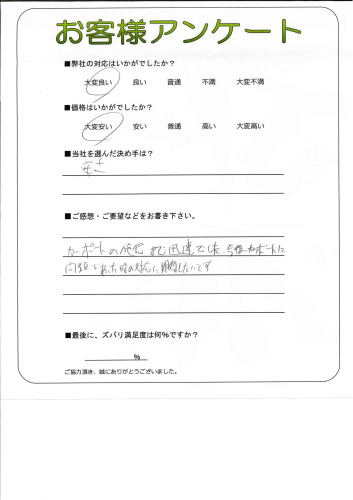 お客様アンケート
■弊社の対応はいかがでしたか？
大変良い 良い 普通 不満 大変不満
■価格はいかがでしたか？
大変安い 安い 普通 高い 大変高い
■当社を選んだ決め手は？
■ご感想・ご要望などをお書き下さい。
カーポートの施行 も 迅速でした。今後カーポートに
問題があった時の対応に期待したいです
■最後に、ズバリ満足度は何%ですか？
%
ご協力頂き、誠にありがとうございました。